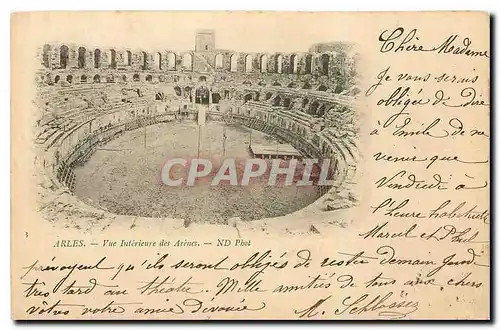 Chère Madame
Je vous serais
obligée de dire
à Emile de ne
venir que
Vendredi à
l'heure habituelle
Marcel et Paul
CPARAMA
ARLES. — Vue Intérieure des Arènes. — ND Phot
prévoyent qu'ils seront obligés de rester demain jeudi
très tard au théâtre. Mille amitiés de tous aux chers
vôtres votre amie dévouée M. Schlosser